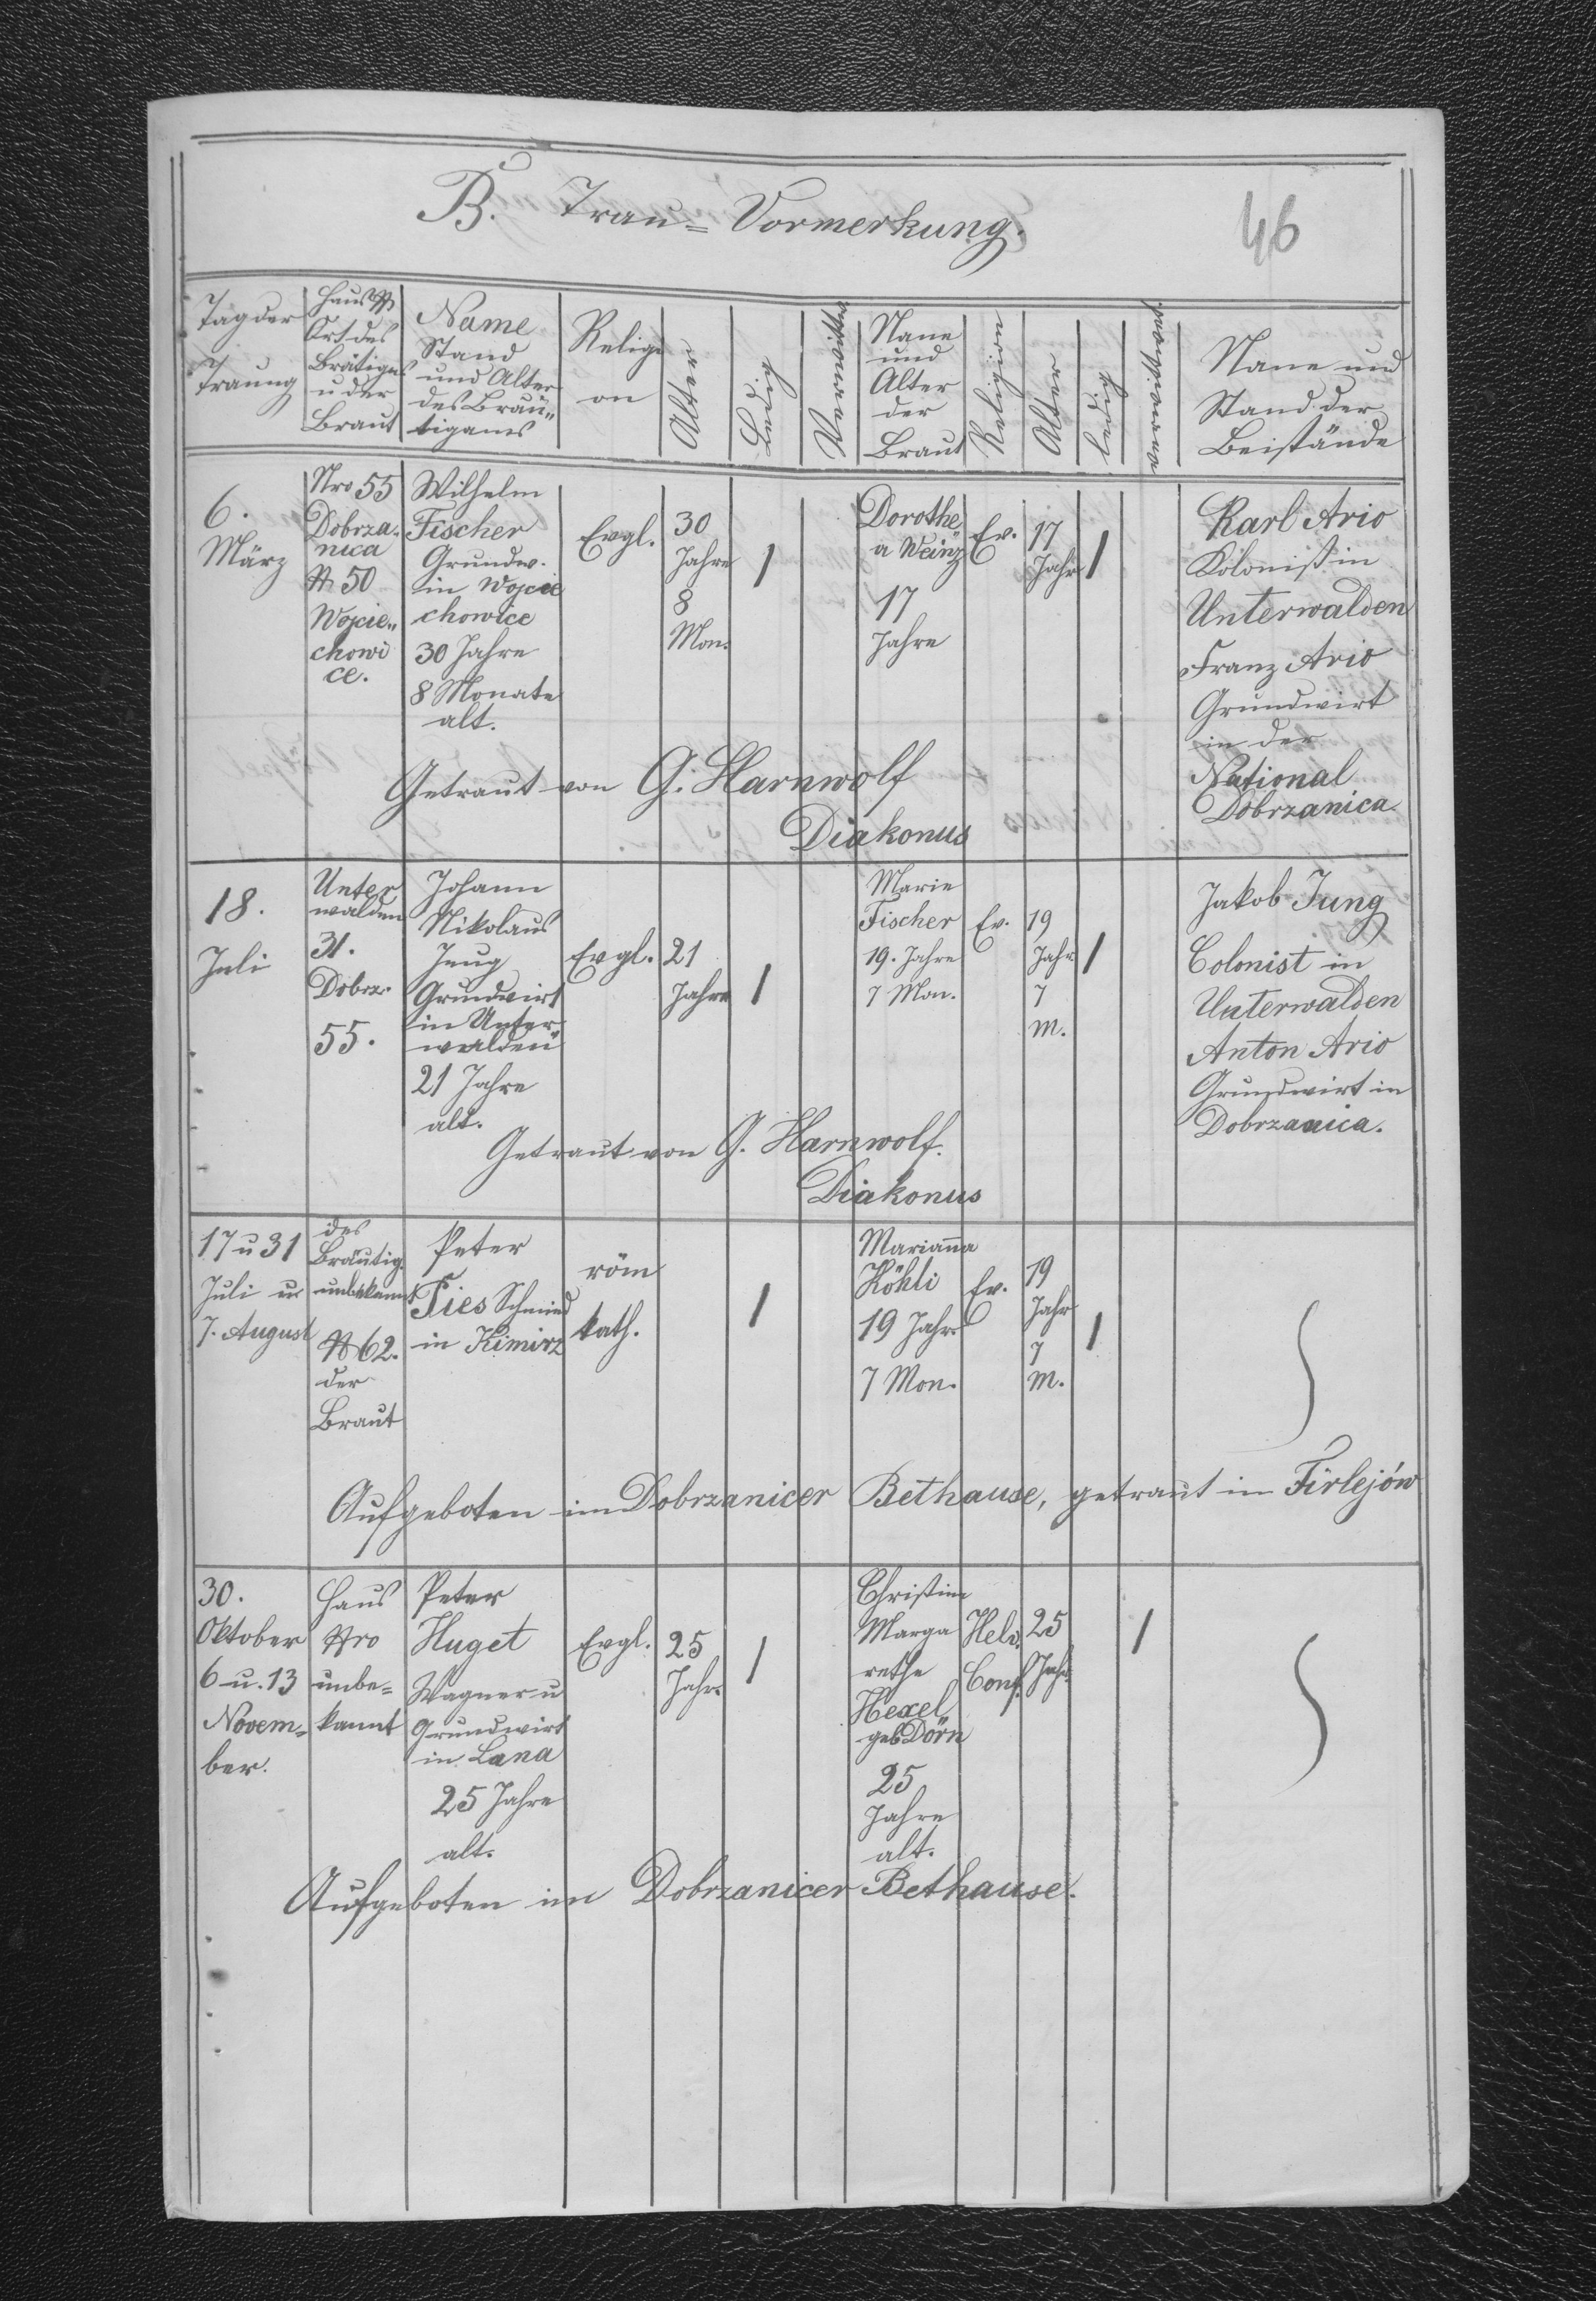 B. Trau= Vormerkung.
46
Tag der
Traung
Haus №
Ort des
Brätigms
u der
Braut
Name
Stand
und Alter
des Bräu„
tigams
Religi
on
Alter
Ledig
Verwittw
Name
und
Alter
der
Braut
Religion
Alter
Ledig
verwittwet
Name und
Stand der
Beistände
6.
März
Nro 55
Dobrza„
nica
№ 50
Wojcie„
chowi
ce.
Wilhelm
Fischer
Grundw.
in Wojcie
chowice
30 Jahre
8 Monate
alt.
Evgl.
30
Jahre
8
Mon.
/
Dorothe
a Weinz
17
Jahre
Ev.
17
Jahr
/
Karl Ario
Kolonist in
Unterwalden
Franz Ario
Grundwirt
in der
National
Dobrzanica.
Getraut von G. Harnwolf
Diakonus
18.
Juli
Unter
walden
31.
Dobrz.
55.
Johann
Nikolaus
Jung
Grundwirt
in Unter„
walden
21 Jahre
alt.
Evgl.
21
Jahre
/
Marie
Fischer
19. Jahre
7 Mon.
Ev.
19
Jahr
7
m.
/
Jakob Jung
Colonist in
Unterwalden
Anton Ario
Grundwirt in
Dobrzanica.
Getraut von G. Harnwolf.
Diakonus
17 u 31
Juli u
7. August
des
Bräutig.
unbekannt
№ 62.
der
Braut
Peter
Ties Schmied
in Kimirz
röm
kath.
/
Marianna
Köhli
19 Jahr.
7 Mon.
Ev.
19
Jahr
7
m.
/
Aufgeboten im Dobrzanicer Bethause, getraut in Firlejów
30.
Oktober
6 u. 13
Novem=
ber.
Haus
Nro
unbe=
kannt
Peter
Huget
Wagner u
Grundwirt
in Lana
25 Jahre
alt.
Evgl.
25
Jahr.
/
Christine
Marga
rethe
Hexel
geb Dörn
25
Jahre
alt.
Helv.
Conf.
25
Jahr.
/
Aufgeboten im Dobrzanicer Bethause.